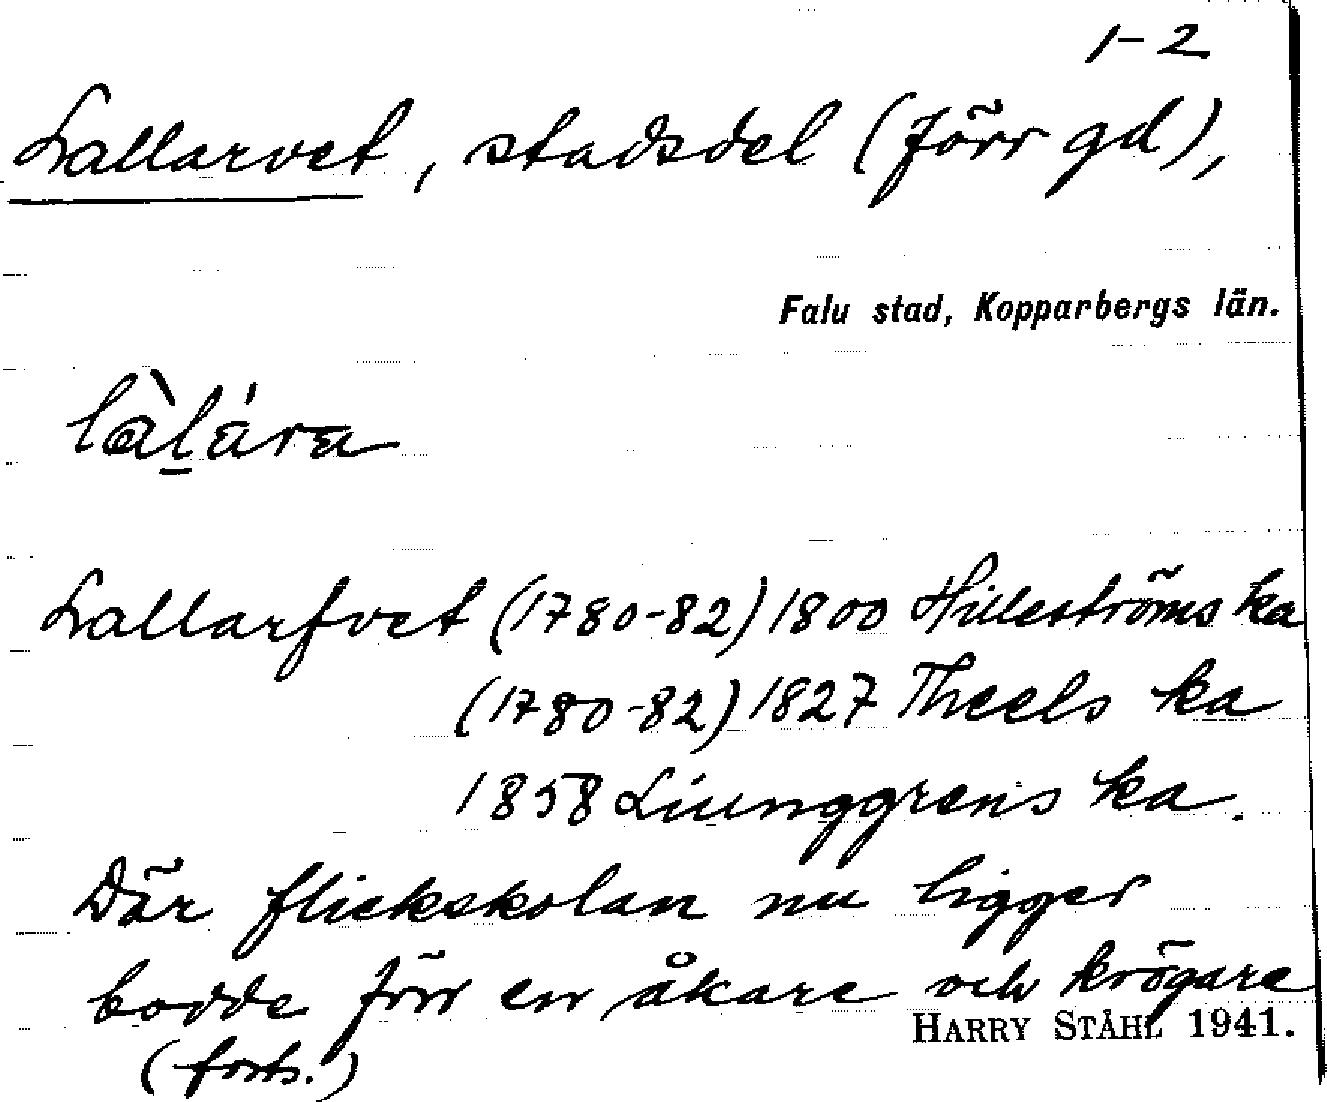 1-2
Lallarvet, stadsdel (förr gd),
Falu stad, Kopparbergs län.
Lallarfvet (1780-82) 1800 Hilleströms ka
(1780-82) 1827 Theels ka
1858 Liunggrens ka.
Där flickskolan nu ligger
bodde förr en åkare och krögare
HARRY STÅHL 1941.
(forts.)